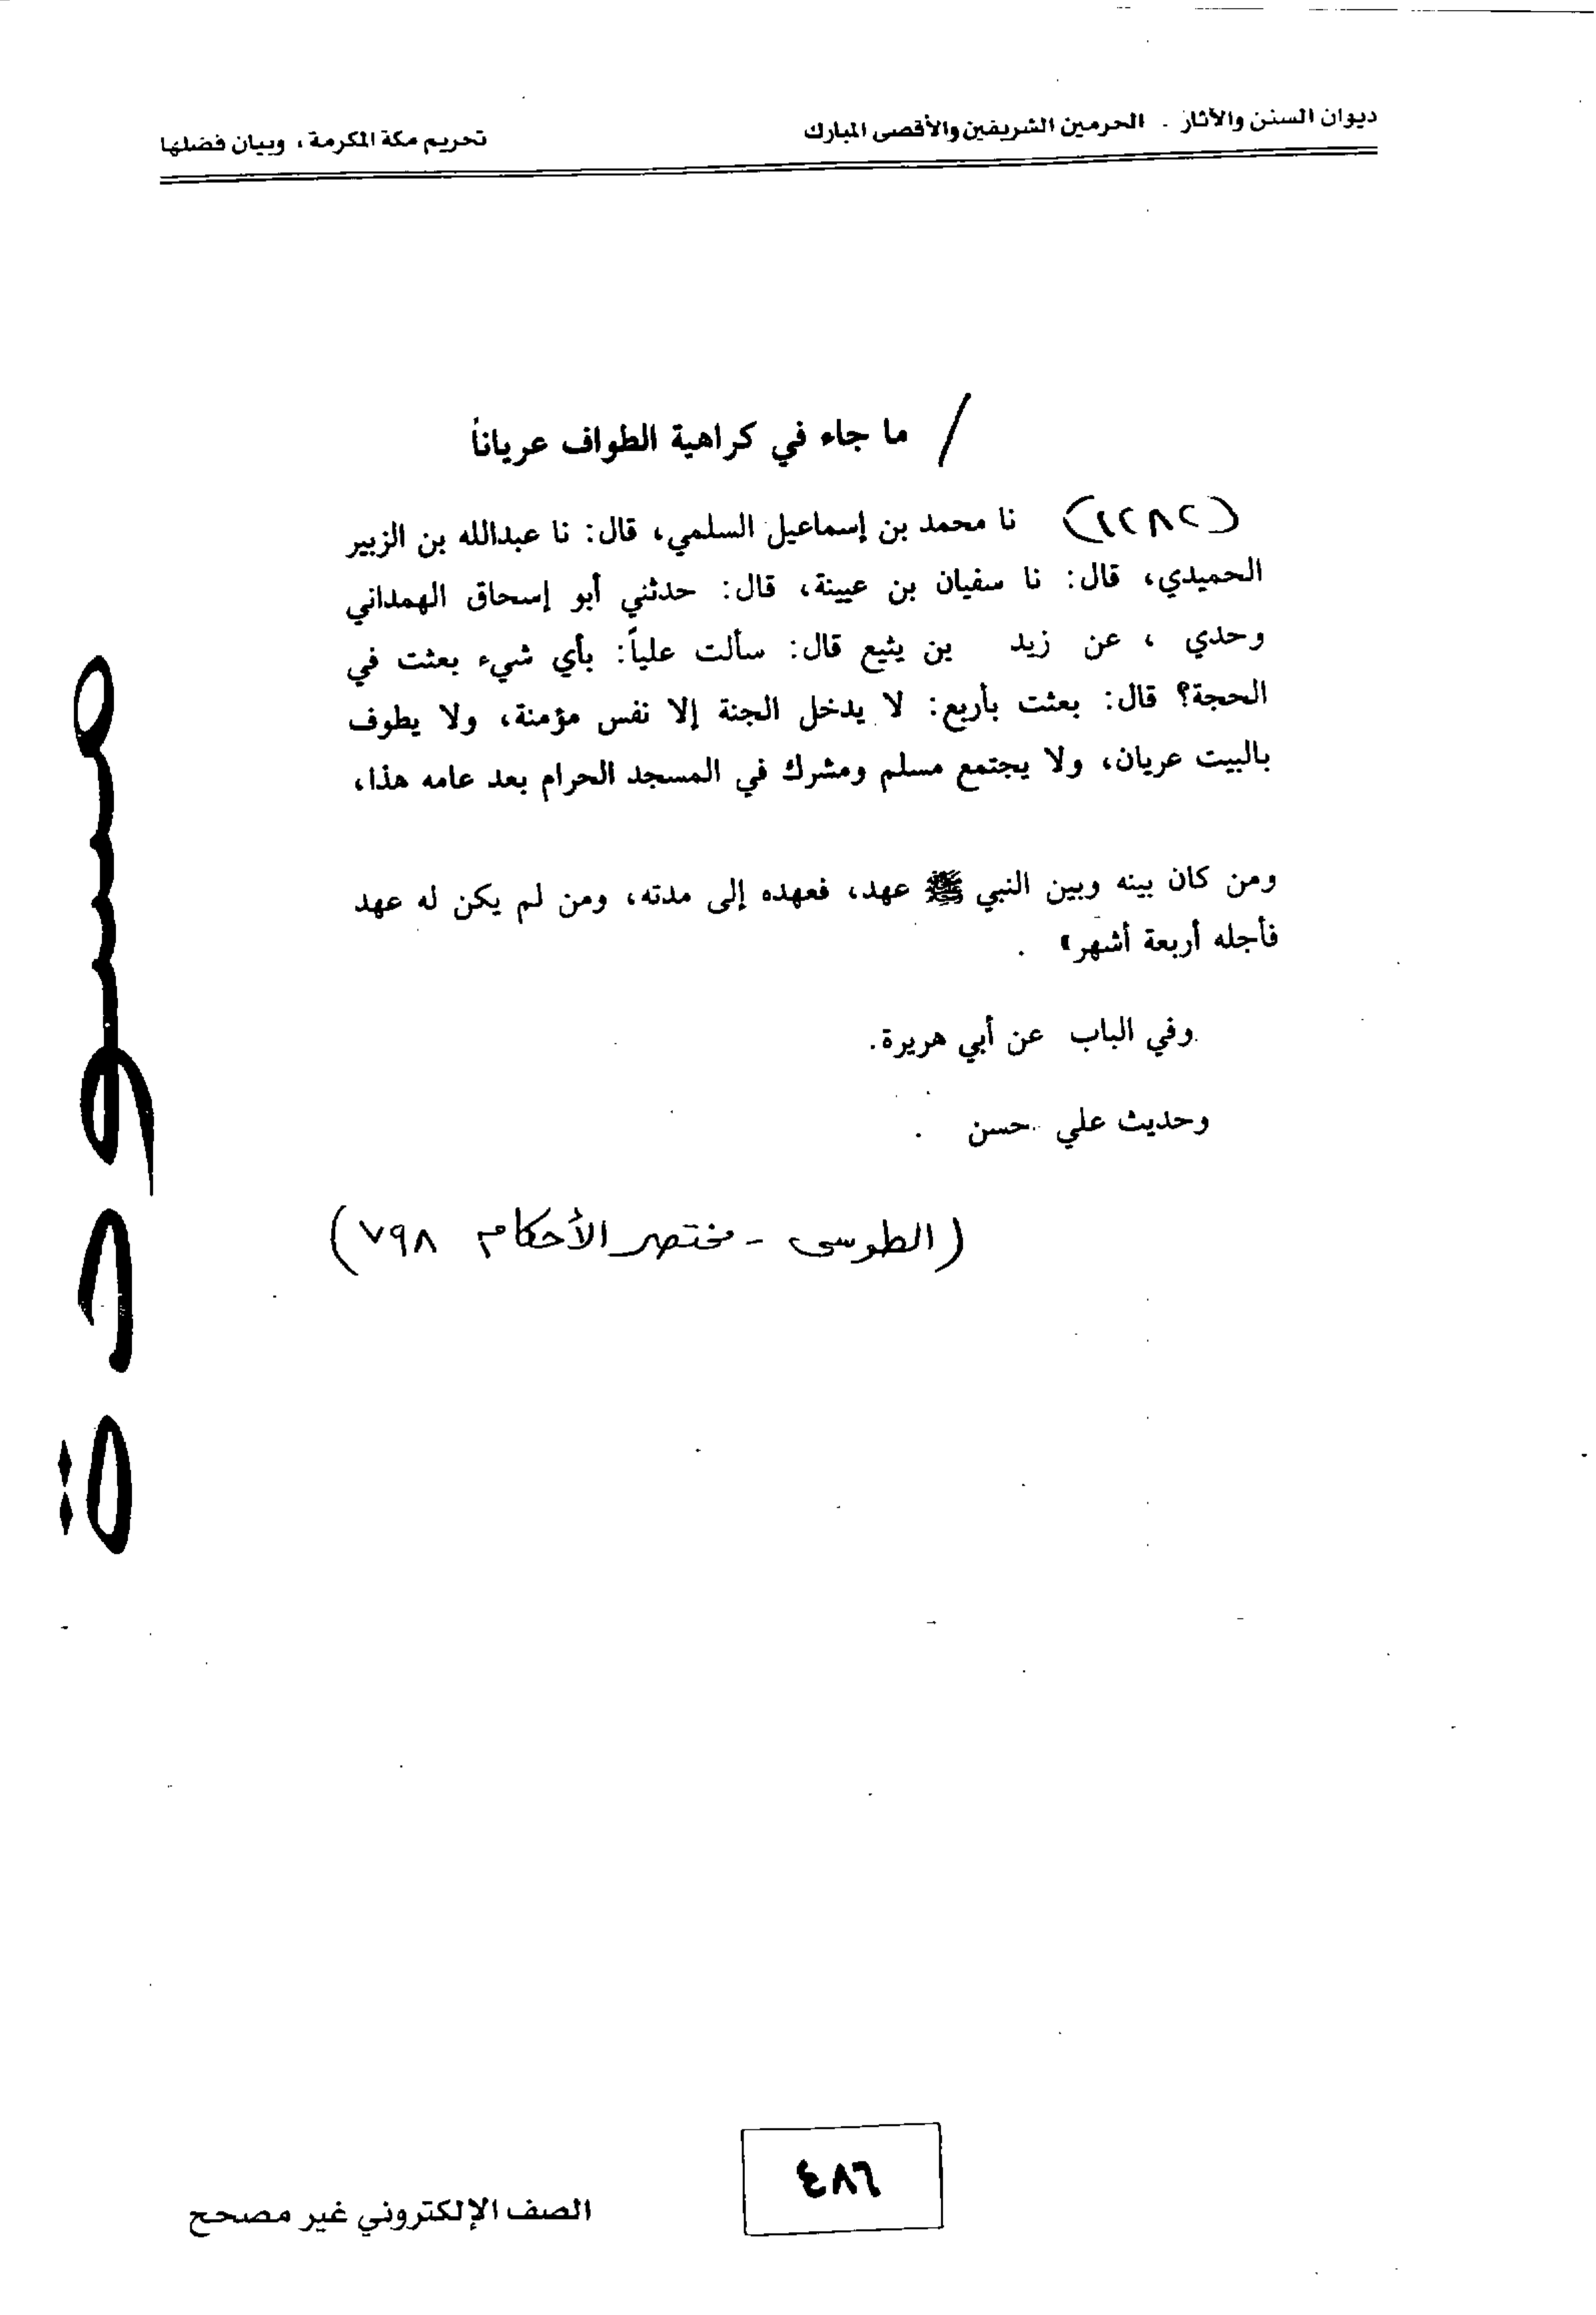 ديوان السنن والآثار . الحرمين الشريفين والأقصى المبارك
تحريم مكة المكرمة ، وبيان فضلها
/ ما جاء في كراهية الطواف عرياناً
(١٢٨٢) نا محمد بن إسماعيل السلمي، قال: نا عبدالله بن الزبير
الحميدي، قال: نا سفيان بن عيينة، قال: حدثني أبو إسحاق الهمداني
وحدي ، عن زيد بن يثيع قال: سألت علياً: بأي شيء بعثت في
الحجة؟ قال: بعثت بأربع: لا يدخل الجنة إلا نفس مؤمنة، ولا يطوف
بالبيت عريان، ولا يجتمع مسلم ومشرك في المسجد الحرام بعد عامه هذا،
ومن كان بينه وبين النبي ﷺ عهد، فعهده إلى مدته، ومن لم يكن له عهد
فأجله أربعة أشهر» .
وفي الباب عن أبي هريرة.
وحديث علي حسن .
(الطوسي - مختصر الأحكام ٧٩٨)
مسودة
٤٨٦
الصف الإلكتروني غير مصحح